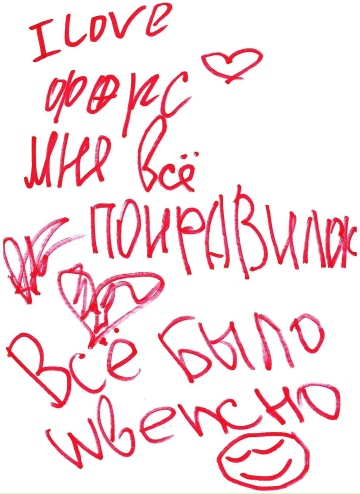 I love
форс
мне всё
понравилос
Всё было
швепсно